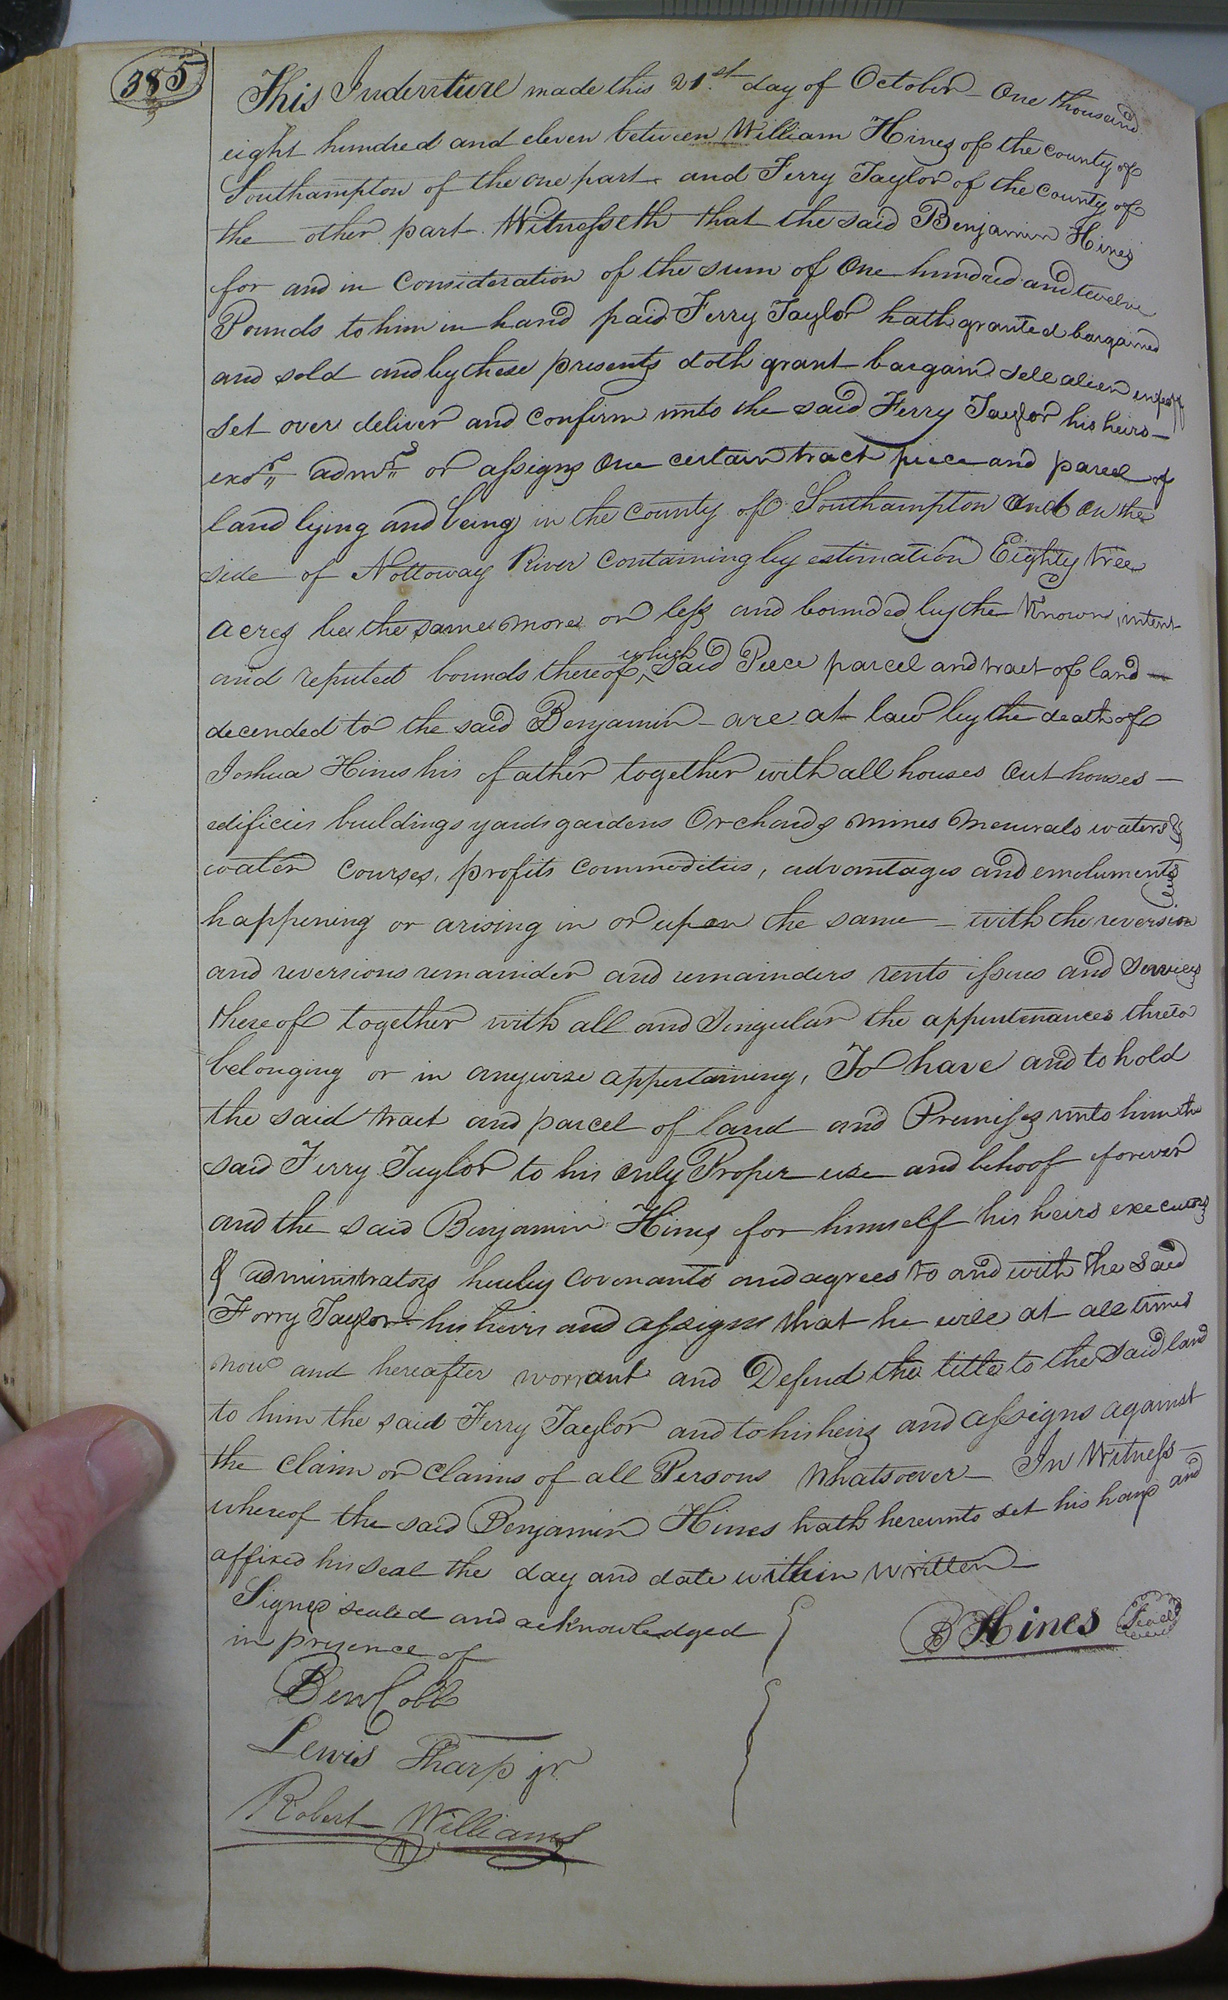 385
This Indenture made this 21.st day of October One thousand
eight hundred and eleven between William Hines of the county of
Southampton of the one part and Ferry Taylor of the County of
the other part Witnesseth that the said Benjamin Hines
for and in Consideration of the sum of One hundred and twelve
Pounds to him in hand paid Ferry Taylor hath granted bargained
and sold and by these presents doth grant bargain sell alien enfeoff
set over deliver and confirm unto the said Ferry Taylor his heirs
exo.rs adm.rs or assigns One certain tract piece and parcel of
land lying and being in the County of Southampton and on the
side of Nottoway River Containing by estimation Eighty three
acres be the same more or less and bounded by the Known, intent
and reputed bounds thereof, which said Peece parcel and tract of land
decended to the said Benjamin are at law by the death of
Joshua Hines his father together with all houses out houses
edificies buildings yards gardens Orchards mines Menirals waters &
water courses, profits commodities, advantages and emoluments
happening or arising in or upon the same with the reversion
and reversions remainder and remainders rents issues and Services
thereof together with all and Singular the appurtenances thereto
belonging or in anywise appertaining, To have and to hold
the said tract and parcel of land and Premises unto him the
said Ferry Taylor to his only Proper use and behoof forever
and the said Benjamin Hines for himself his heirs executors
& administrators hereby Covenants and agrees to and with the said
Forry Taylor his heirs and assigns that he will at all times
now and hereafter worrant and Defend the title to the said land
to him the said Ferry Taylor and to his heirs and assigns against
the claim or claims of all Persons Whatsoever In Witness
whereof the said Benjamin Hines hath hereunto set his hand and
affixed his seal the day and date within written
Signed sealed and acknowledged
in presence of
B Hines Seal
Ben Cobb
Lewis Tharp jr.
Robert Williams